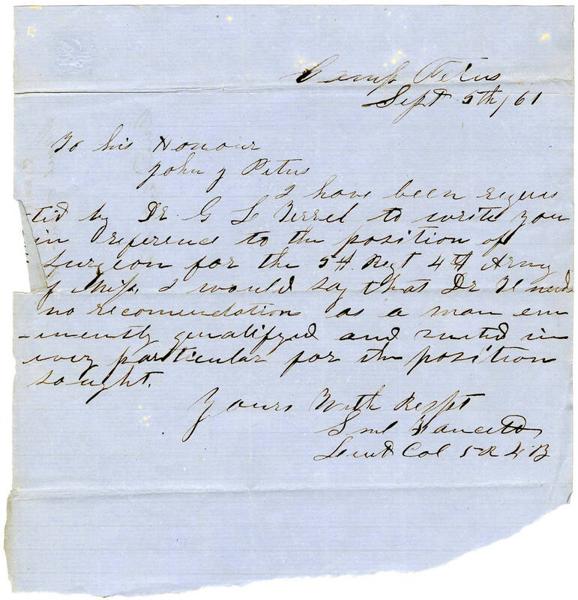 Camp Petus
Sept 5th/61
To his Honour
John J Petus
I have been reques
ted by Dr G L to write you
in reference to the position of
surgeon for the 5th Regt 4th Army
of Miss, I would say that Dr needs
no recomendation as a man em
-inently qualifyed and suited in
every particular for the position
sought.
Yours With Respt
Sml
Leiut Col 5 R 4 B